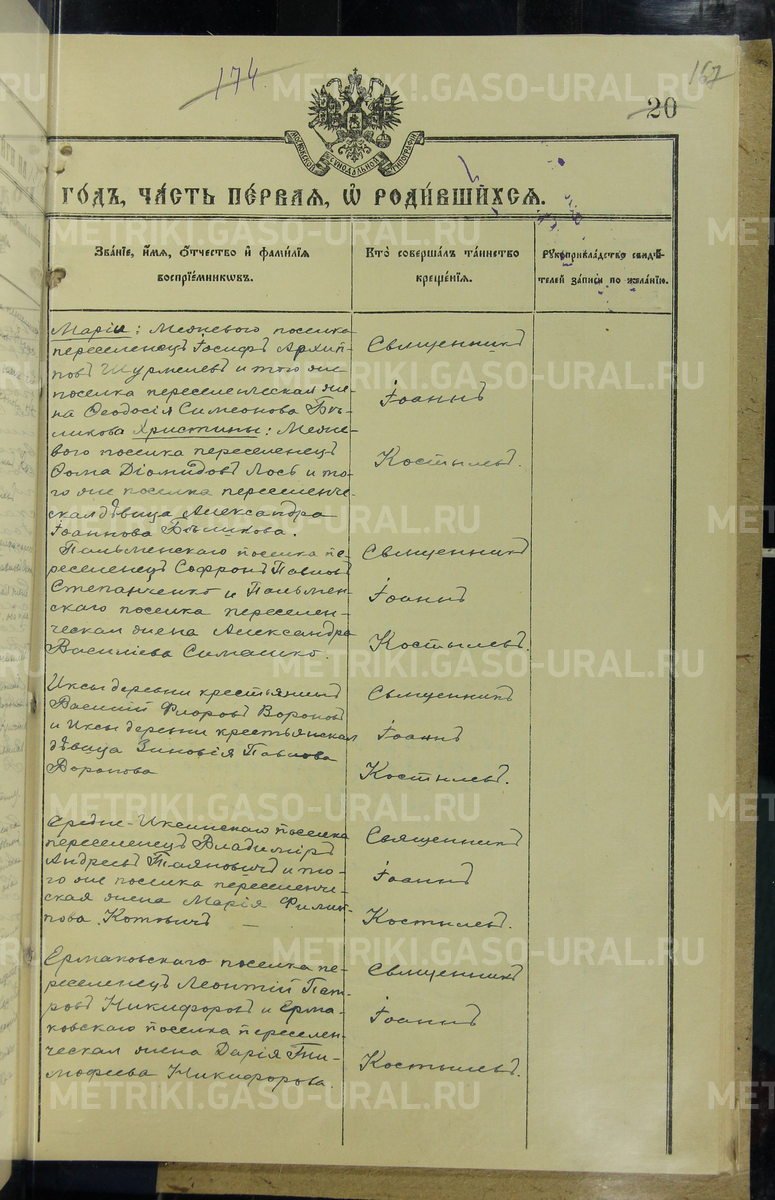 174
167
20
МОСКОВСКОЙ СѴНОДАЛЬНОЙ ТИПОГРАФІИ
ГОДЪ, ЧАСТЬ ПЕРВАЯ, Ѡ РОДИВШИХСЯ.
Званіе, имя, отчество и фамилія
воспріемниковъ.
Кто совершалъ таинство
крещенія.
Рукоприкладство свидѣ-
телей записи по желанію.
Маріи: Межевого поселка
переселенецъ Іосифъ Архип-
повъ Шурмелевъ и того же
поселка переселенческая же-
на Ѳеодосія Симеонова Бѣ-
ликова Христины: Меже-
вого поселка переселенецъ
Ѳома Діомидовъ Лось и то-
го же поселка переселенче-
ская дѣвица Александра
Іоаннова Бѣликова.
Священникъ
Іоаннъ
Костылевъ.
Пальменскаго поселка пе-
реселенецъ Софронъ Павловъ
Степанченко и Пальмен-
скаго поселка переселен-
ческая жена Александра
Василіева Симашко.
Священникъ
Іоаннъ
Костылевъ.
Иксы деревни крестьянинъ
Василій Флоровъ Вороновъ
и Иксы деревни крестьянская
дѣвица Зиновія Павлова
Воронова
Священникъ
Іоаннъ
Костылевъ.
Средне-Иксинскаго поселка
переселенецъ Владиміръ
Андреевъ Таяновичъ и то-
го же поселка переселенче-
ская жена Марія Филип-
пова Котовичъ —
Священникъ
Іоаннъ
Костылевъ.
Ермаковскаго поселка пе-
реселенецъ Леонтій Пет-
ровъ Никифоровъ и Ерма-
ковскаго поселка переселен-
ческая жена Дарія Ти-
мофеева Никифорова.
Священникъ
Іоаннъ
Костылевъ.
METRIKI.GASO-URAL.RU